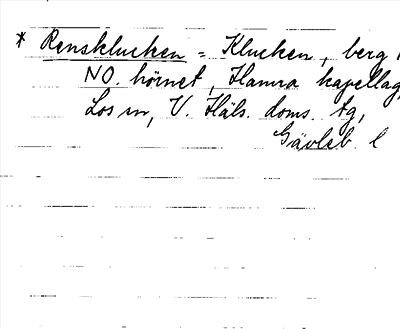 * Rensklucken = Klucken, berg i
NO. hörnet, Hamra kapellag,
Los sn, V. Häls. doms. tg,
Gävleb. l